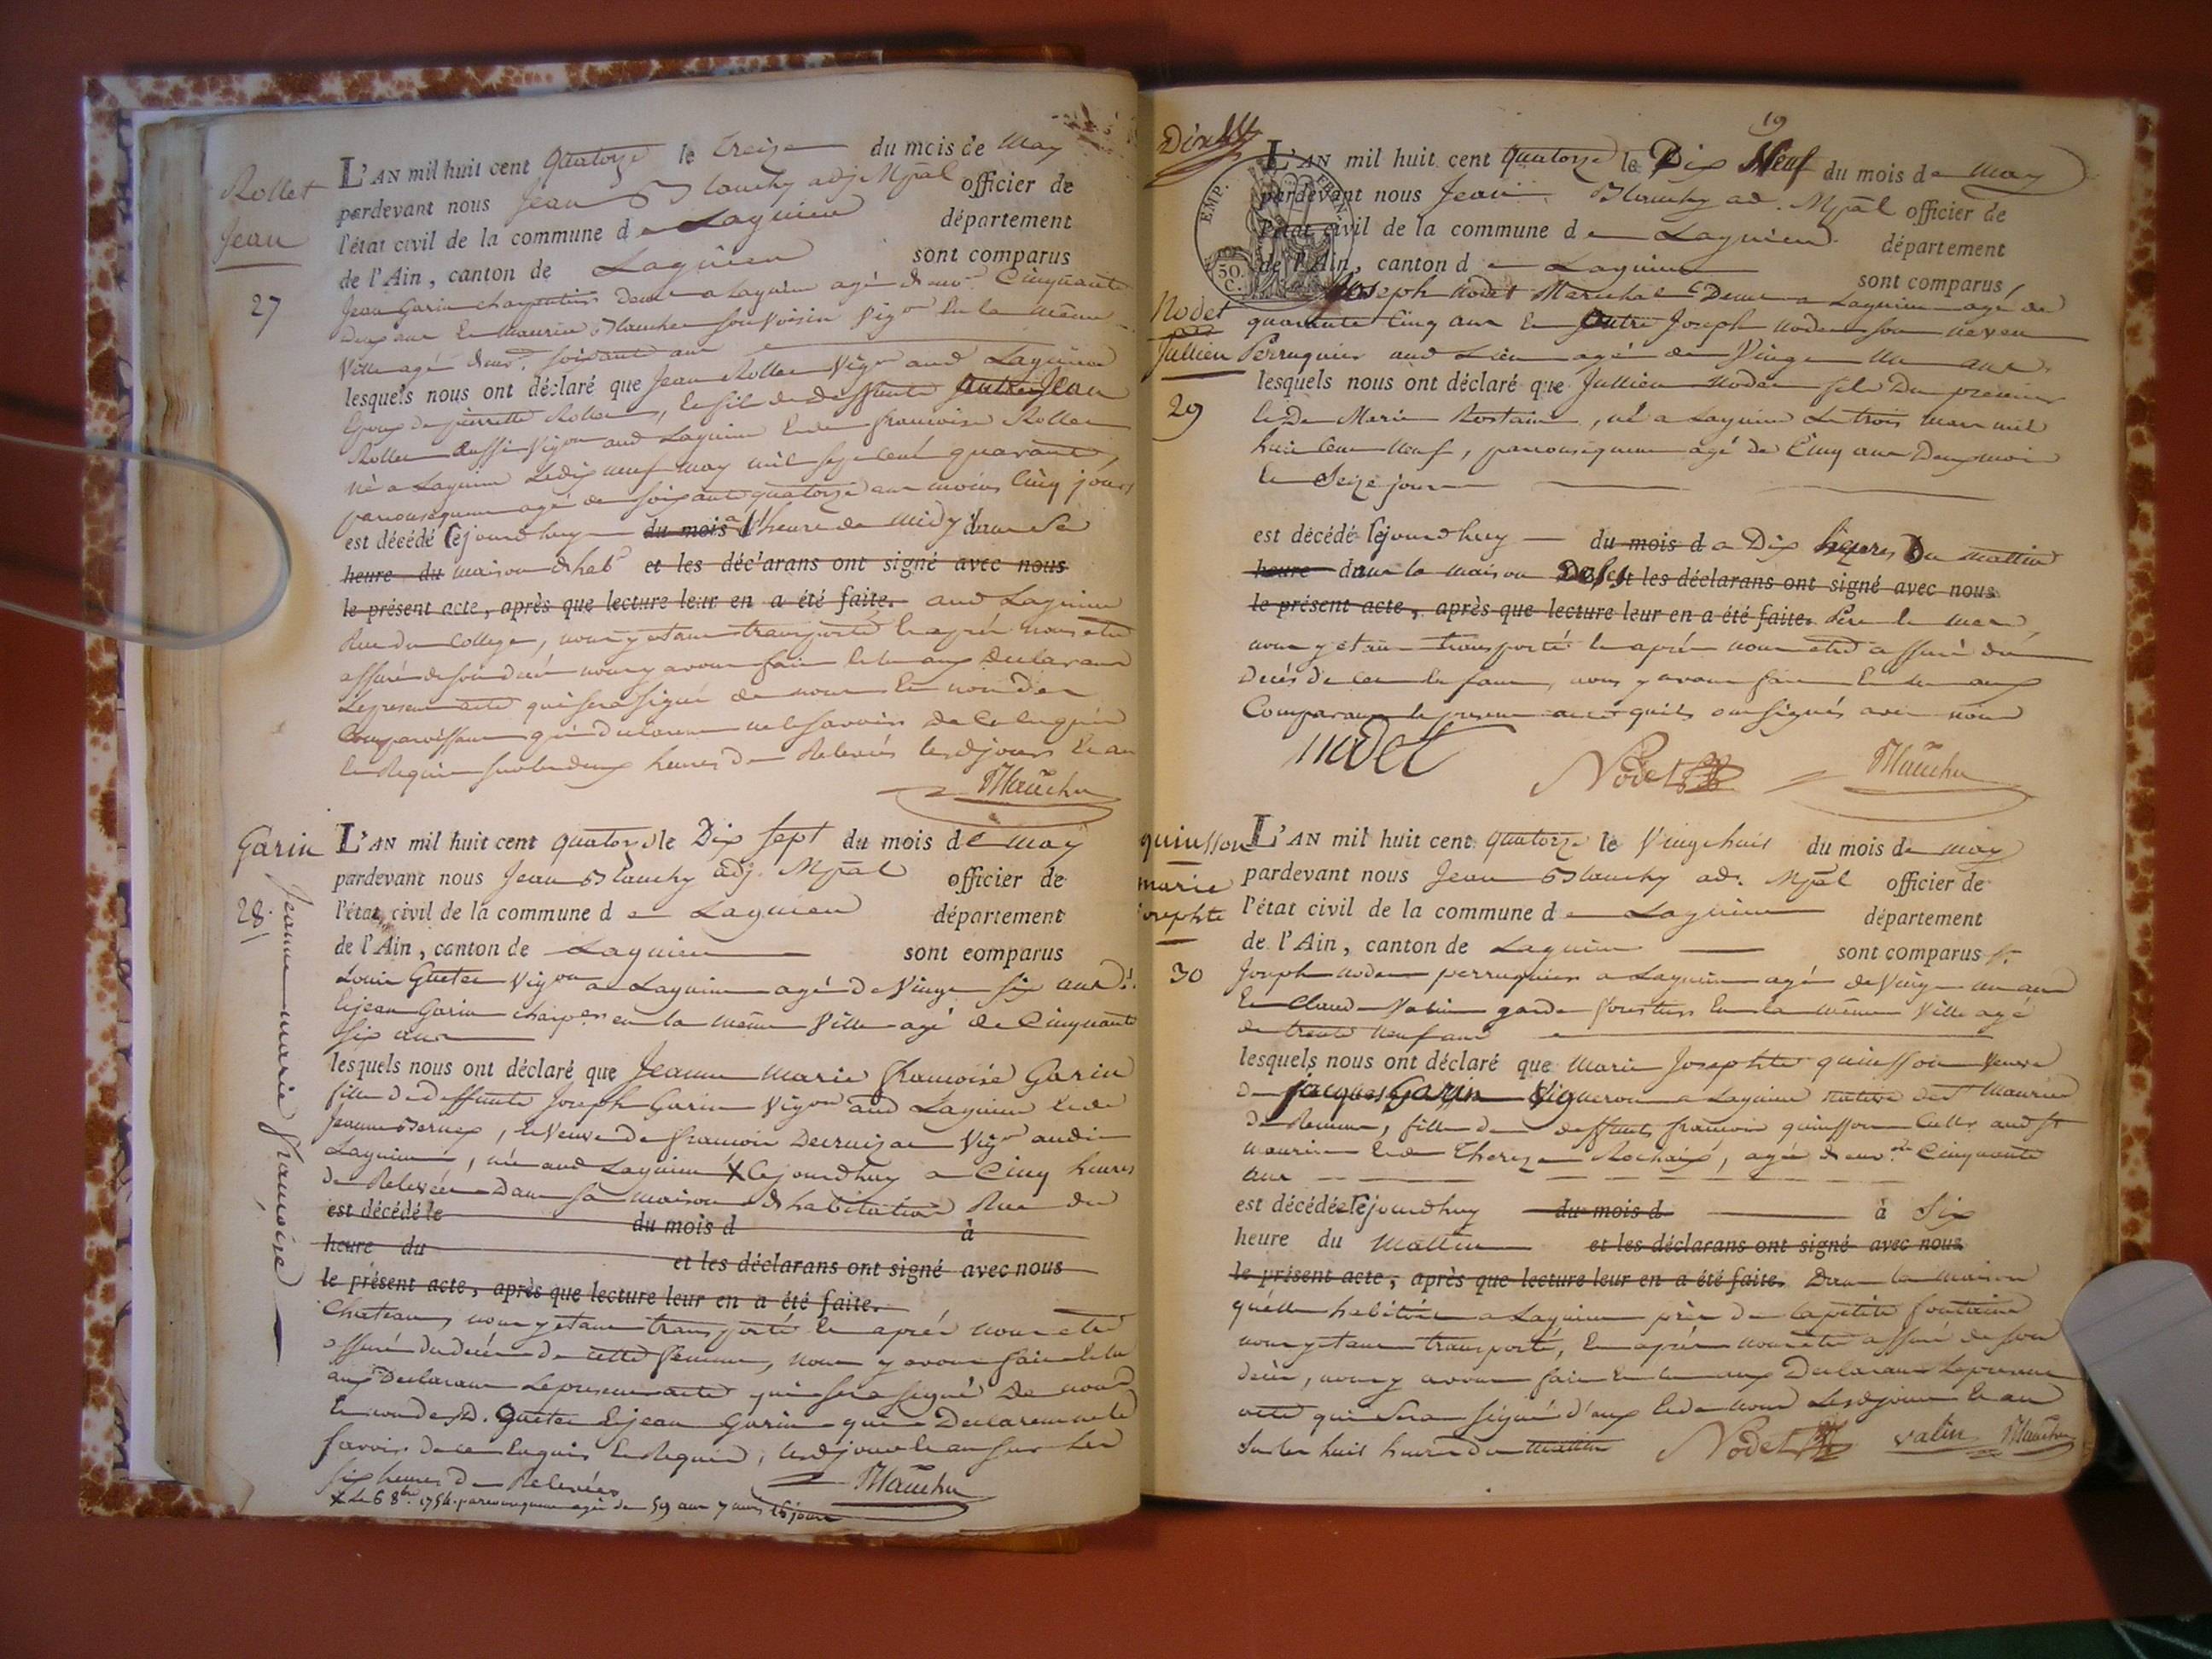 Rollet
Jean
27
L'AN mil huit cent quatorze le treize du mois de may
pardevant nous Jean Blanchy adj. Mpāl officier de
l'état civil de la commune de Lagnieu département
de l'Ain, canton de Lagnieu sont comparus
Jean Garin charpentier a Lagnieu agé cinquante
deux ans son voisin vigon en la même
ville agé soixante ans
lesquels nous ont déclaré que Jean Rollet vigon aud Lagnieu
Epoux de pierrette, fils de deffunts autre Jean
Rollet aussi vigon aud Lagnieu et de francoise Rollet
né a Lagnieu le dix neuf may mil sept cent quarante,
par consequent agé de soixante quatorze ans moins cinq jours
est décédé cejourdhuy du mois a l'heure de midy dans sa
heure du maison d'habon et les déclarans ont signé avec nous
le présent acte, après que lecture leur en a été faite. aud Lagnieu
Rue du College, nous y etant transporté et après nous etre
assuré de son decés nous y avons fait et lu aux declarans
le present acte qui sera signé de nous et non des
comparoissans qui declarent ne le savoir de ce enquis
et Requis sur les deux heures de Relevée lesd jours et an
Garin
28
Jeanne marie francoise
L'AN mil huit cent quatorze le Dix sept du mois de may
pardevant nous Jean Blanchy adj. Mpāl officier de
l'état civil de la commune de Lagnieu département
de l'Ain, canton de Lagnieu sont comparus
Louis Gueter vigon a Lagnieu agé de vingt six ans
et jean Garin charpen en la même ville agé de cinquante
six ans
lesquels nous ont déclaré que Jeanne marie francoise Garin
fille de deffunts Joseph Garin vigon aud Lagnieu et de
Jeanne, et veuve de francois vigon audit
Lagnieu, née aud Lagnieu X cejourdhuy a cinq heures
de Relevée dans sa maison d'habitation Rue du
est décédé le du mois d à
heure du et les déclarans ont signé avec nous
le présent acte, après que lecture leur en a été faite.
Chateau, nous y etant transporté et après nous etre
assuré du decés de cette femme, nous y avons fait et lu
aux Declarans le present acte qui sera signé de nous
et non desd. Gueter et jean Garin qui Declarent ne le
savoir de ce enquis et Requis, lesd jour et an sur les
six heures de Relevée
X Le 6 8bre 1754. par consequent agée de 59 ans 7 mois jours
19
EMP. FRAN.
50.
C.
Nodet
Jullien
29
L'AN mil huit cent quatorze le Dix Neuf du mois de may
pardevant nous Jean Blanchy ad. Mpāl officier de
l'état civil de la commune de Lagnieu département
de l'Ain, canton de Lagnieu sont comparus
Joseph Nodet Marechal a Lagnieu agé de
quarante cinq ans et autre Joseph Nodet son neveu
Perruquier aud Lieu agé de vingt un ans
lesquels nous ont déclaré que Jullien Nodet fils du premier
et de Marie Rostain, né a Lagnieu le trois mars mil
huit cent neuf, par consequent agé de cinq ans deux mois
et seize jours
est décédé cejourdhuy du mois d a Dix heures Du mattin
heure dans la maison de ses et les déclarans ont signé avec nous
le présent acte, après que lecture leur en a été faite. Pere et mere,
nous y etant transporté et après nous etre assuré du
decés de cet enfant, nous y avons fait et lu aux
Comparans le present acte quils ont signés avec nous
nodet
Nodet
quinsson
marie
josephte
30
L'AN mil huit cent quatorze le Vingt huit du mois de may
pardevant nous Jean Blanchy ad. Mpāl officier de
l'état civil de la commune de Lagnieu département
de l'Ain, canton de Lagnieu sont comparus
Joseph Nodet perruquier a Lagnieu agé de vingt un ans
et Claude Valin garde forestier en la même ville agé
de trente neuf ans
lesquels nous ont déclaré que Marie Josephte quinsson veuve
de jacques Garin Vigneron a Lagnieu native de St Maurice
de Remens, fille de deffunts francois quinsson Cultr aud St
maurice et de Therese, agée cinquante
ans
est décédée cejourdhuy du mois d à six
heure du mattin et les déclarans ont signé avec nous
le présent acte, après que lecture leur en a été faite. Dans la maison
quelle habitoit a Lagnieu près de la petite fontaine
nous y etant transporté, et après nous etre assuré de son
decés, nous y avons fait et lu aux Declarans le present
acte qui sera signé d'eux et de nous lesd jour et an
sur les huit heures du mattin
Nodet valin